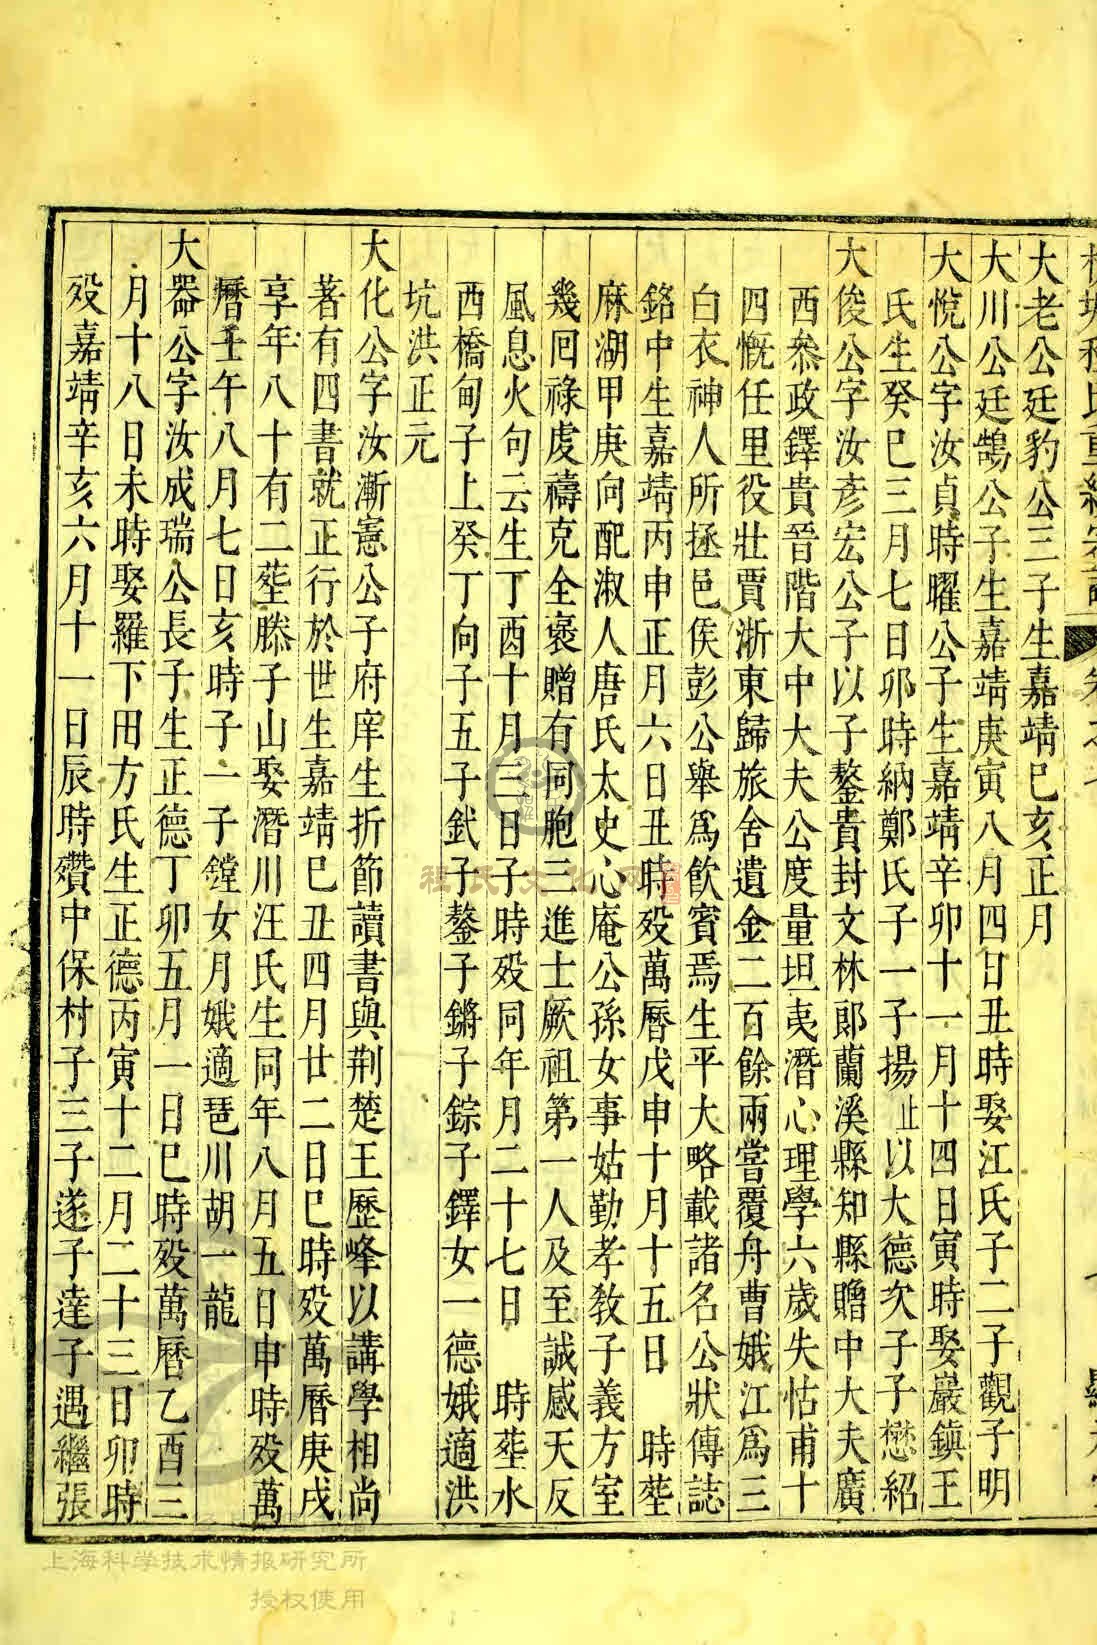 大老公廷豹公三子生嘉靖己亥正月
大川公廷鵠公子生嘉靖庚寅八月四日丑時娶江氏子二子觀子明
大悅公字汝貞時曜公子生嘉靖辛卯十一月十四日寅時娶巖鎮王
氏生癸巳三月七日卯時納鄭氏子一子揚止以大德次子子懋紹
大俊公字汝彥宏公子以子鏊貴封文林郎蘭溪縣知縣贈中大夫廣
西叅政鐸貴晉階大中大夫公度量坦夷潛心理學六歲失怙甫十
四慨任里役壯賈浙東歸旅舍遺金二百餘兩嘗覆舟曹娥江為三
白衣神人所拯邑侯彭公舉為飲賓焉生平大略載諸名公狀傳誌
銘中生嘉靖丙申正月六日丑時歿萬曆戊申十月十五日　時塟
麻湖甲庚向配淑人唐氏太史心庵公孫女事姑勤孝教子義方室
幾回祿虔禱克全褒贈有同胞三進士厥祖第一人及至誠感天反
風息火句云生丁酉十月三日子時歿同年月二十七日　時塟水
西橋甸子上癸丁向子五子鈛子鏊子鏘子錝子鐸女一德娥適洪
坑洪正元
大化公字汝漸憲公子府庠生折節讀書與荆楚王歷峰以講學相尚
著有四書就正行於世生嘉靖己丑四月廿二日巳時歿萬曆庚戌
享年八十有二塟塍子山娶潛川汪氏生同年八月五日申時歿萬
曆壬午八月七日亥時子一子鏜女月娥適琶川胡一龍
大器公字汝成瑞公長子生正德丁卯五月一日巳時歿萬曆乙酉三
月十八日未時娶羅下田方氏生正德丙寅十二月二十三日卯時
歿嘉靖辛亥六月十一日辰時欑中保村子三子遂子達子遇繼張
程氏文化网
上海科学技术情报研究所
授权使用